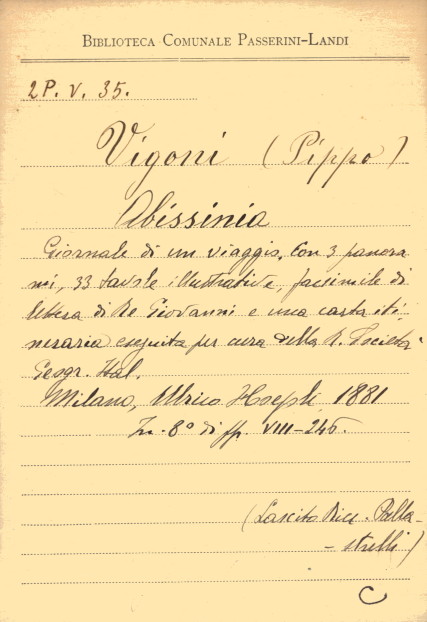 BIBLIOTECA COMUNALE PASSERINI-LANDI
2P. V. 35.
Vigoni (Pippo)
Abissinia
Giornale di un viaggio, con 3 panora
mi, 33 tavole illustrative, facsimile di
lettera di Re Giovanni e una carta iti
neraria eseguita per cura della R. Società
Geogr. Ital.
Milano, Ulrico Hoepli, 1881
In-8° di pp. VIII-246.
(Lascito Palla-
-strelli)
C